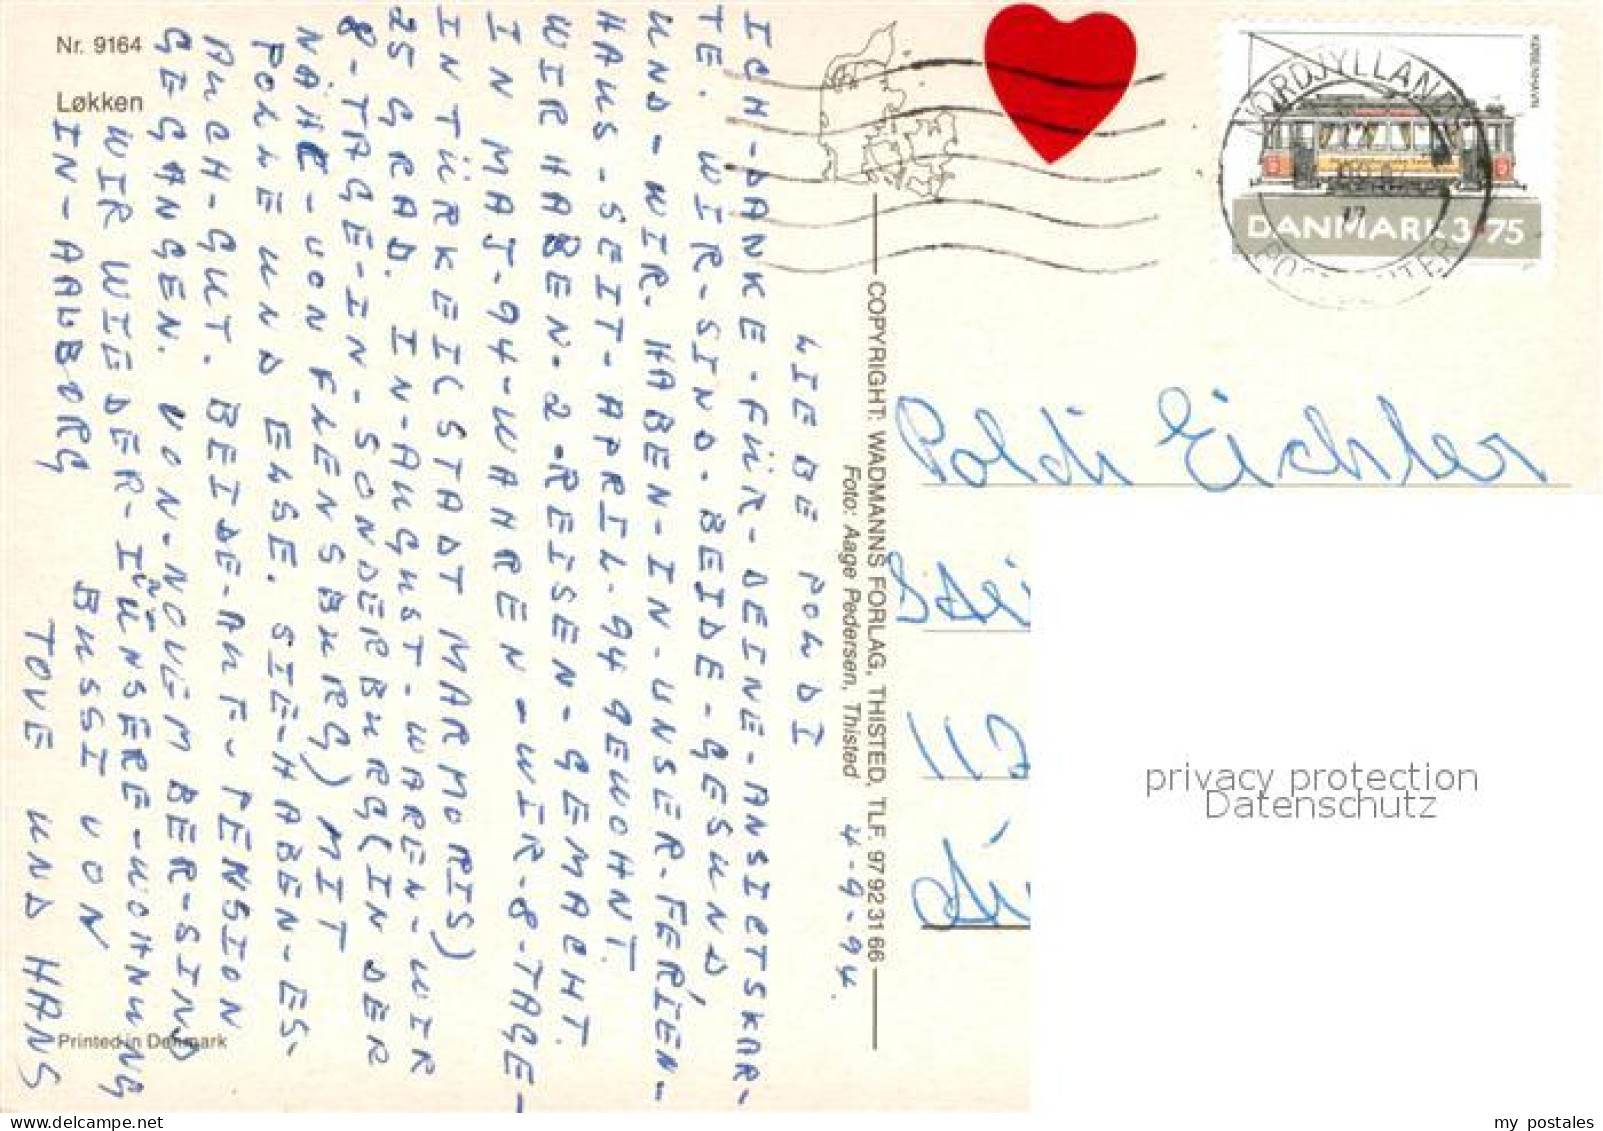 Nr. 9164
Løkken
4-9-94.
LIEBE POLDI
ICH-DANKE-FÜR-DEINE-ANSICTSKAR-
TE. WIR-SIND-BEIDE-GESUND,
UND-WIR. HABEN-IN-UNSER-FERIEN-
HAUS-SEIT-APRIL-94 GEWOHNT.
WIR HABEN-2-REISEN-GEMACHT.
IN MAJ-94-WAHREN-WIR-8-TAGE-
IN TÜRKEI(STADT MARMORIS)
25 GRAD. IN-AUGUST-WAREN-WIR
8-TAGE-IN-SONDERBURG(IN DER
NÄHE-VON FLENSBURG) MIT
POLLE UND ELSE. SIE-HABEN-ES-
AUCH-GUT. BEIDE-AUF-PENSION
GEGANGEN. VON-NOVEMBER-SIND
WIR WIEDER-IN UNSERE-WOHNUNG
IN-AALBORG
BUSSI VON
TOVE UND HANS
Printed in Denmark
COPYRIGHT: WADMANNS FORLAG, THISTED, TLF. 97 92 31 66
Foto: Aage Pedersen, Thisted
NORDJYLLANDS
POSTCENTER
KØBENHAVN
DANMARK 3.75
Poldi Eichler
privacy protection
Datenschutz
my postales